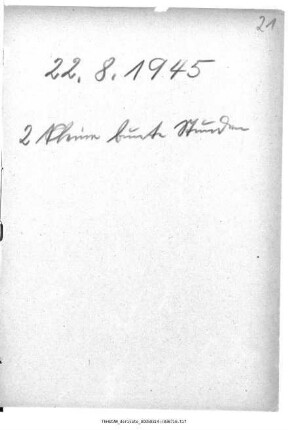 21
22. 8. 1945
2 kleine bunte Stunden